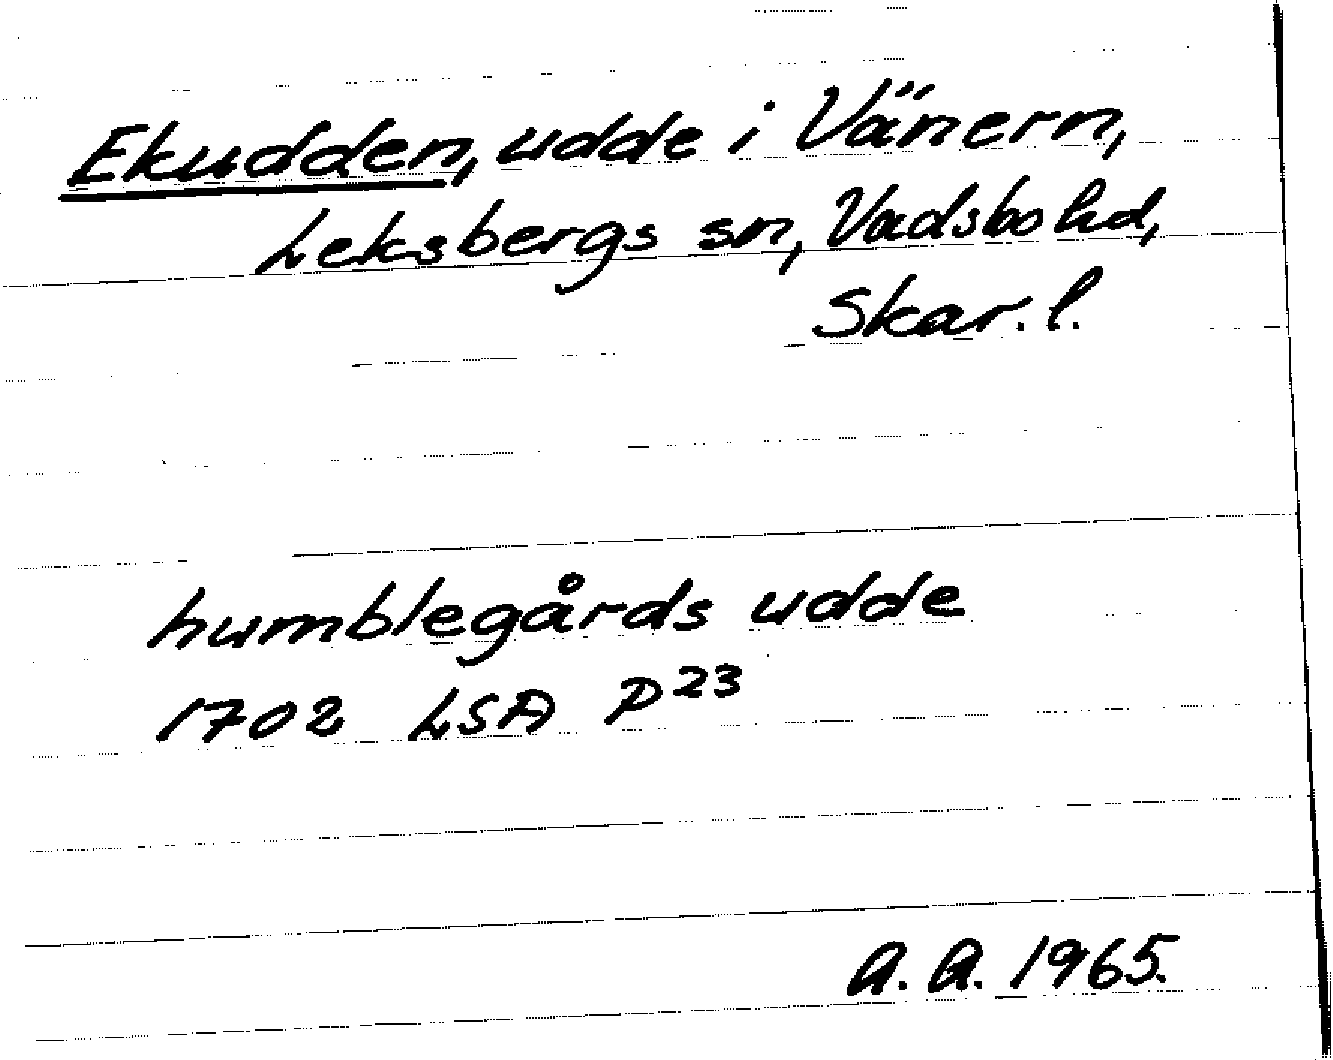 Ekudden, udde i Vänern,
Leksbergs sn, Vadsbo hd,
Skar. l.
humblegårds udde
1702 LSA P²³
A. A. 1965.